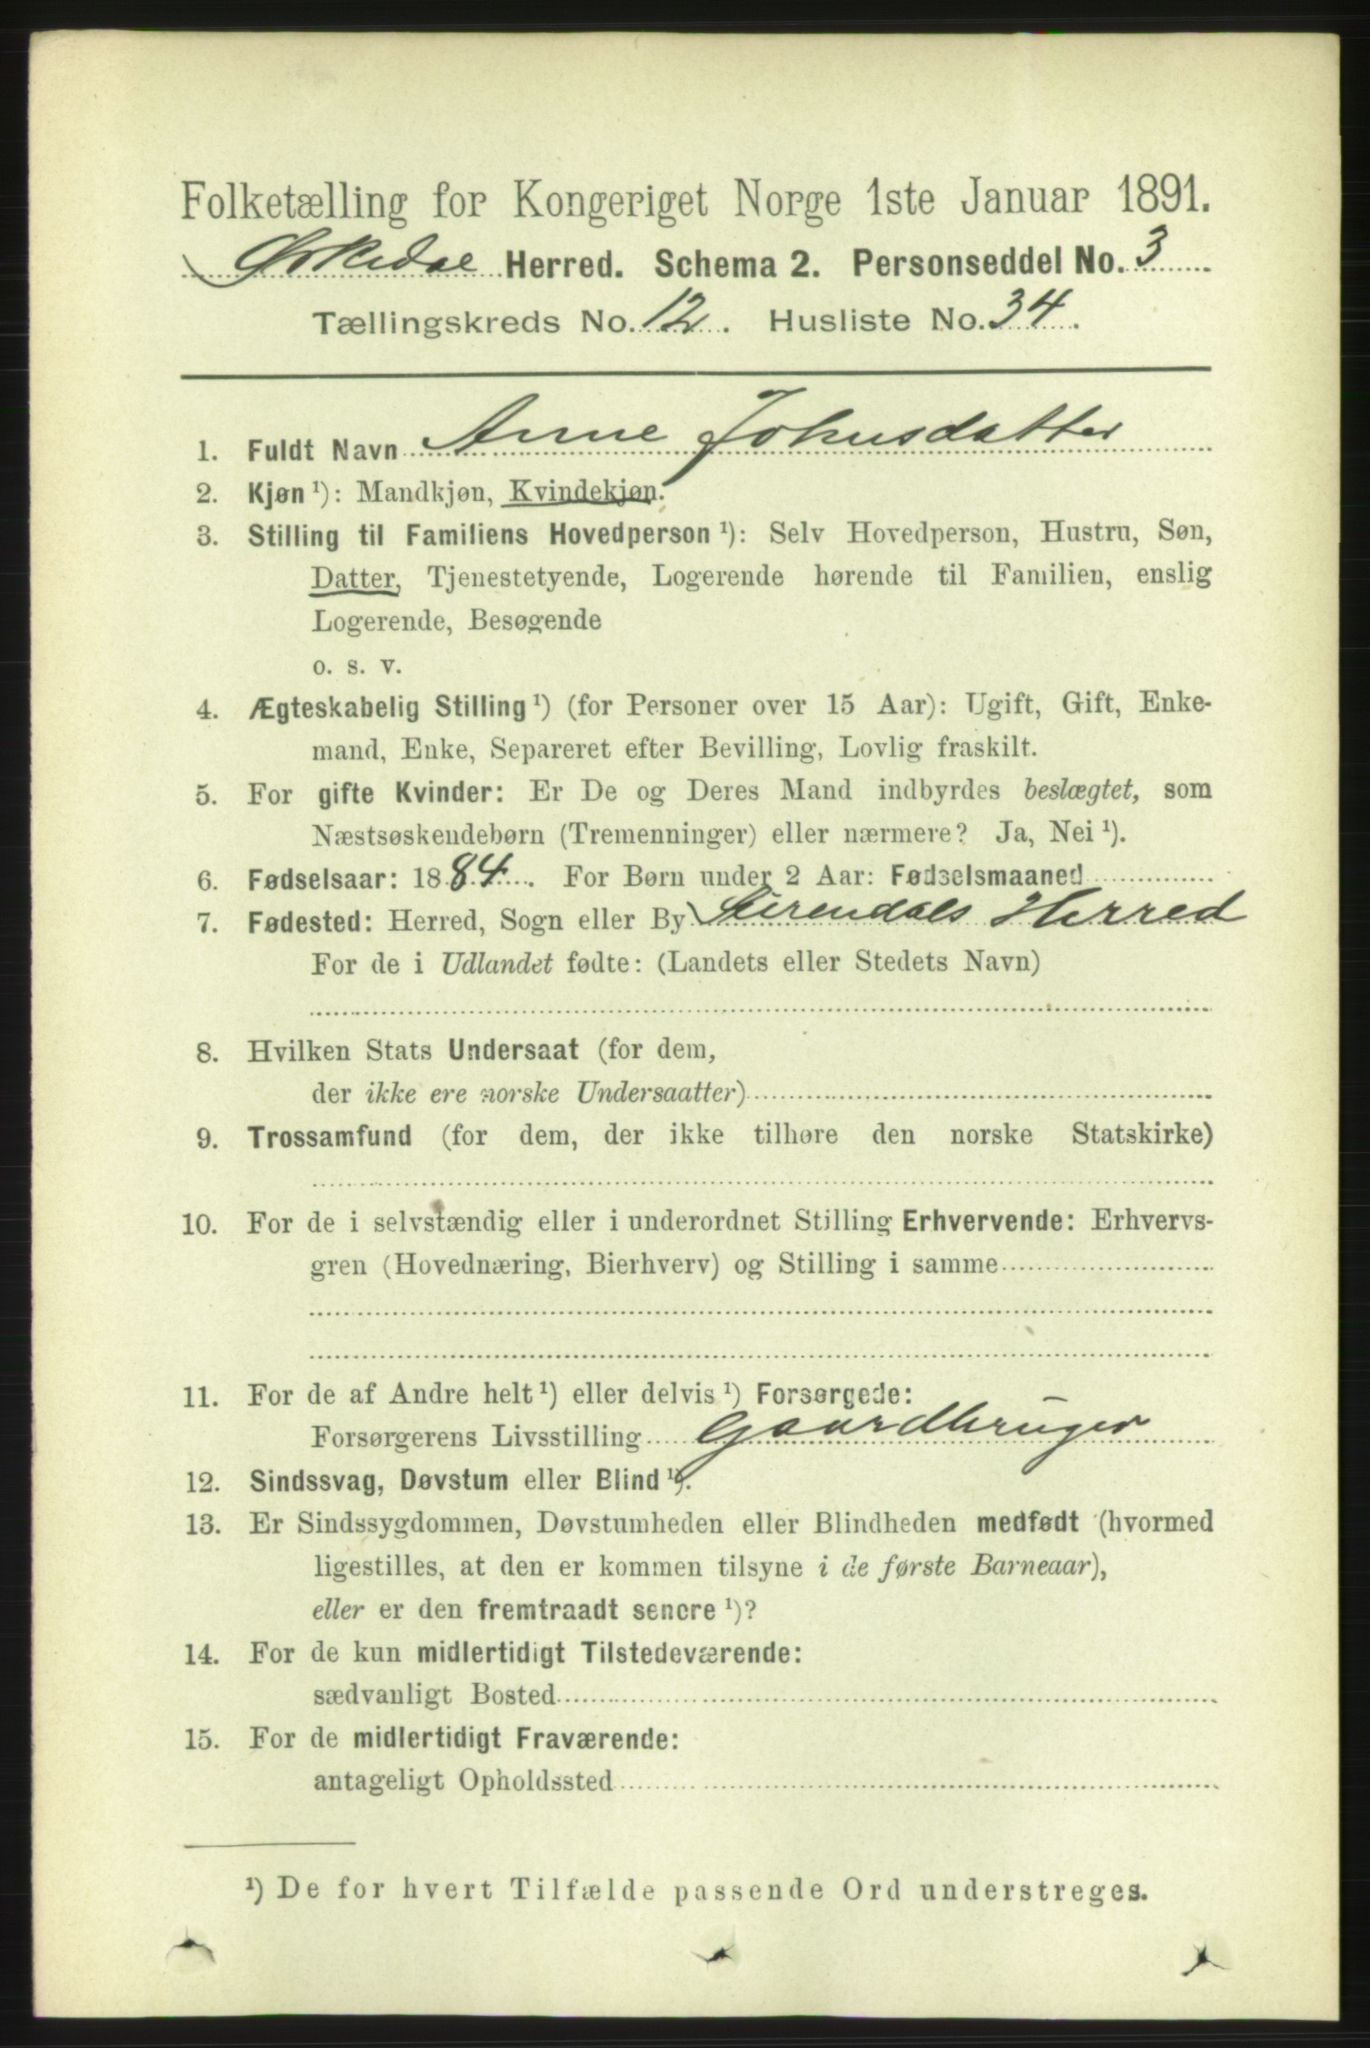 Folketælling for Kongeriget Norge 1ste Januar 1891.
Ørkedal Herred. Schema 2. Personseddel No. 3
Tællingskreds No. 12. Husliste No. 34.
1. Fuldt Navn Anne Johnsdatter
2. Kjøn ¹): Mandkjøn, Kvindekjøn.
3. Stilling til Familiens Hovedperson ¹): Selv Hovedperson, Hustru, Søn,
Datter, Tjenestetyende, Logerende hørende til Familien, enslig
Logerende, Besøgende
o. s. v.
4. Ægteskabelig Stilling ¹) (for Personer over 15 Aar): Ugift, Gift, Enke-
mand, Enke, Separeret efter Bevilling, Lovlig fraskilt.
5. For gifte Kvinder: Er De og Deres Mand indbyrdes beslægtet, som
Næstsøskendebørn (Tremenninger) eller nærmere? Ja, Nei ¹).
6. Fødselsaar: 1884. For Børn under 2 Aar: Fødselsmaaned
7. Fødested: Herred, Sogn eller By Herred
For de i Udlandet fødte: (Landets eller Stedets Navn)
8. Hvilken Stats Undersaat (for dem,
der ikke ere norske Undersaatter)
9. Trossamfund (for dem, der ikke tilhøre den norske Statskirke)
10. For de i selvstændig eller i underordnet Stilling Erhvervende: Erhvervs-
gren (Hovednæring, Bierhverv) og Stilling i samme
11. For de af Andre helt ¹) eller delvis ¹) Forsørgede:
Forsørgerens Livsstilling Gaardbruger
12. Sindssvag, Døvstum eller Blind ¹).
13. Er Sindssygdommen, Døvstumheden eller Blindheden medfødt (hvormed
ligestilles, at den er kommen tilsyne i de første Barneaar),
eller er den fremtraadt senere ¹)?
14. For de kun midlertidigt Tilstedeværende:
sædvanligt Bosted
15. For de midlertidigt Fraværende:
antageligt Opholdssted
¹) De for hvert Tilfælde passende Ord understreges.